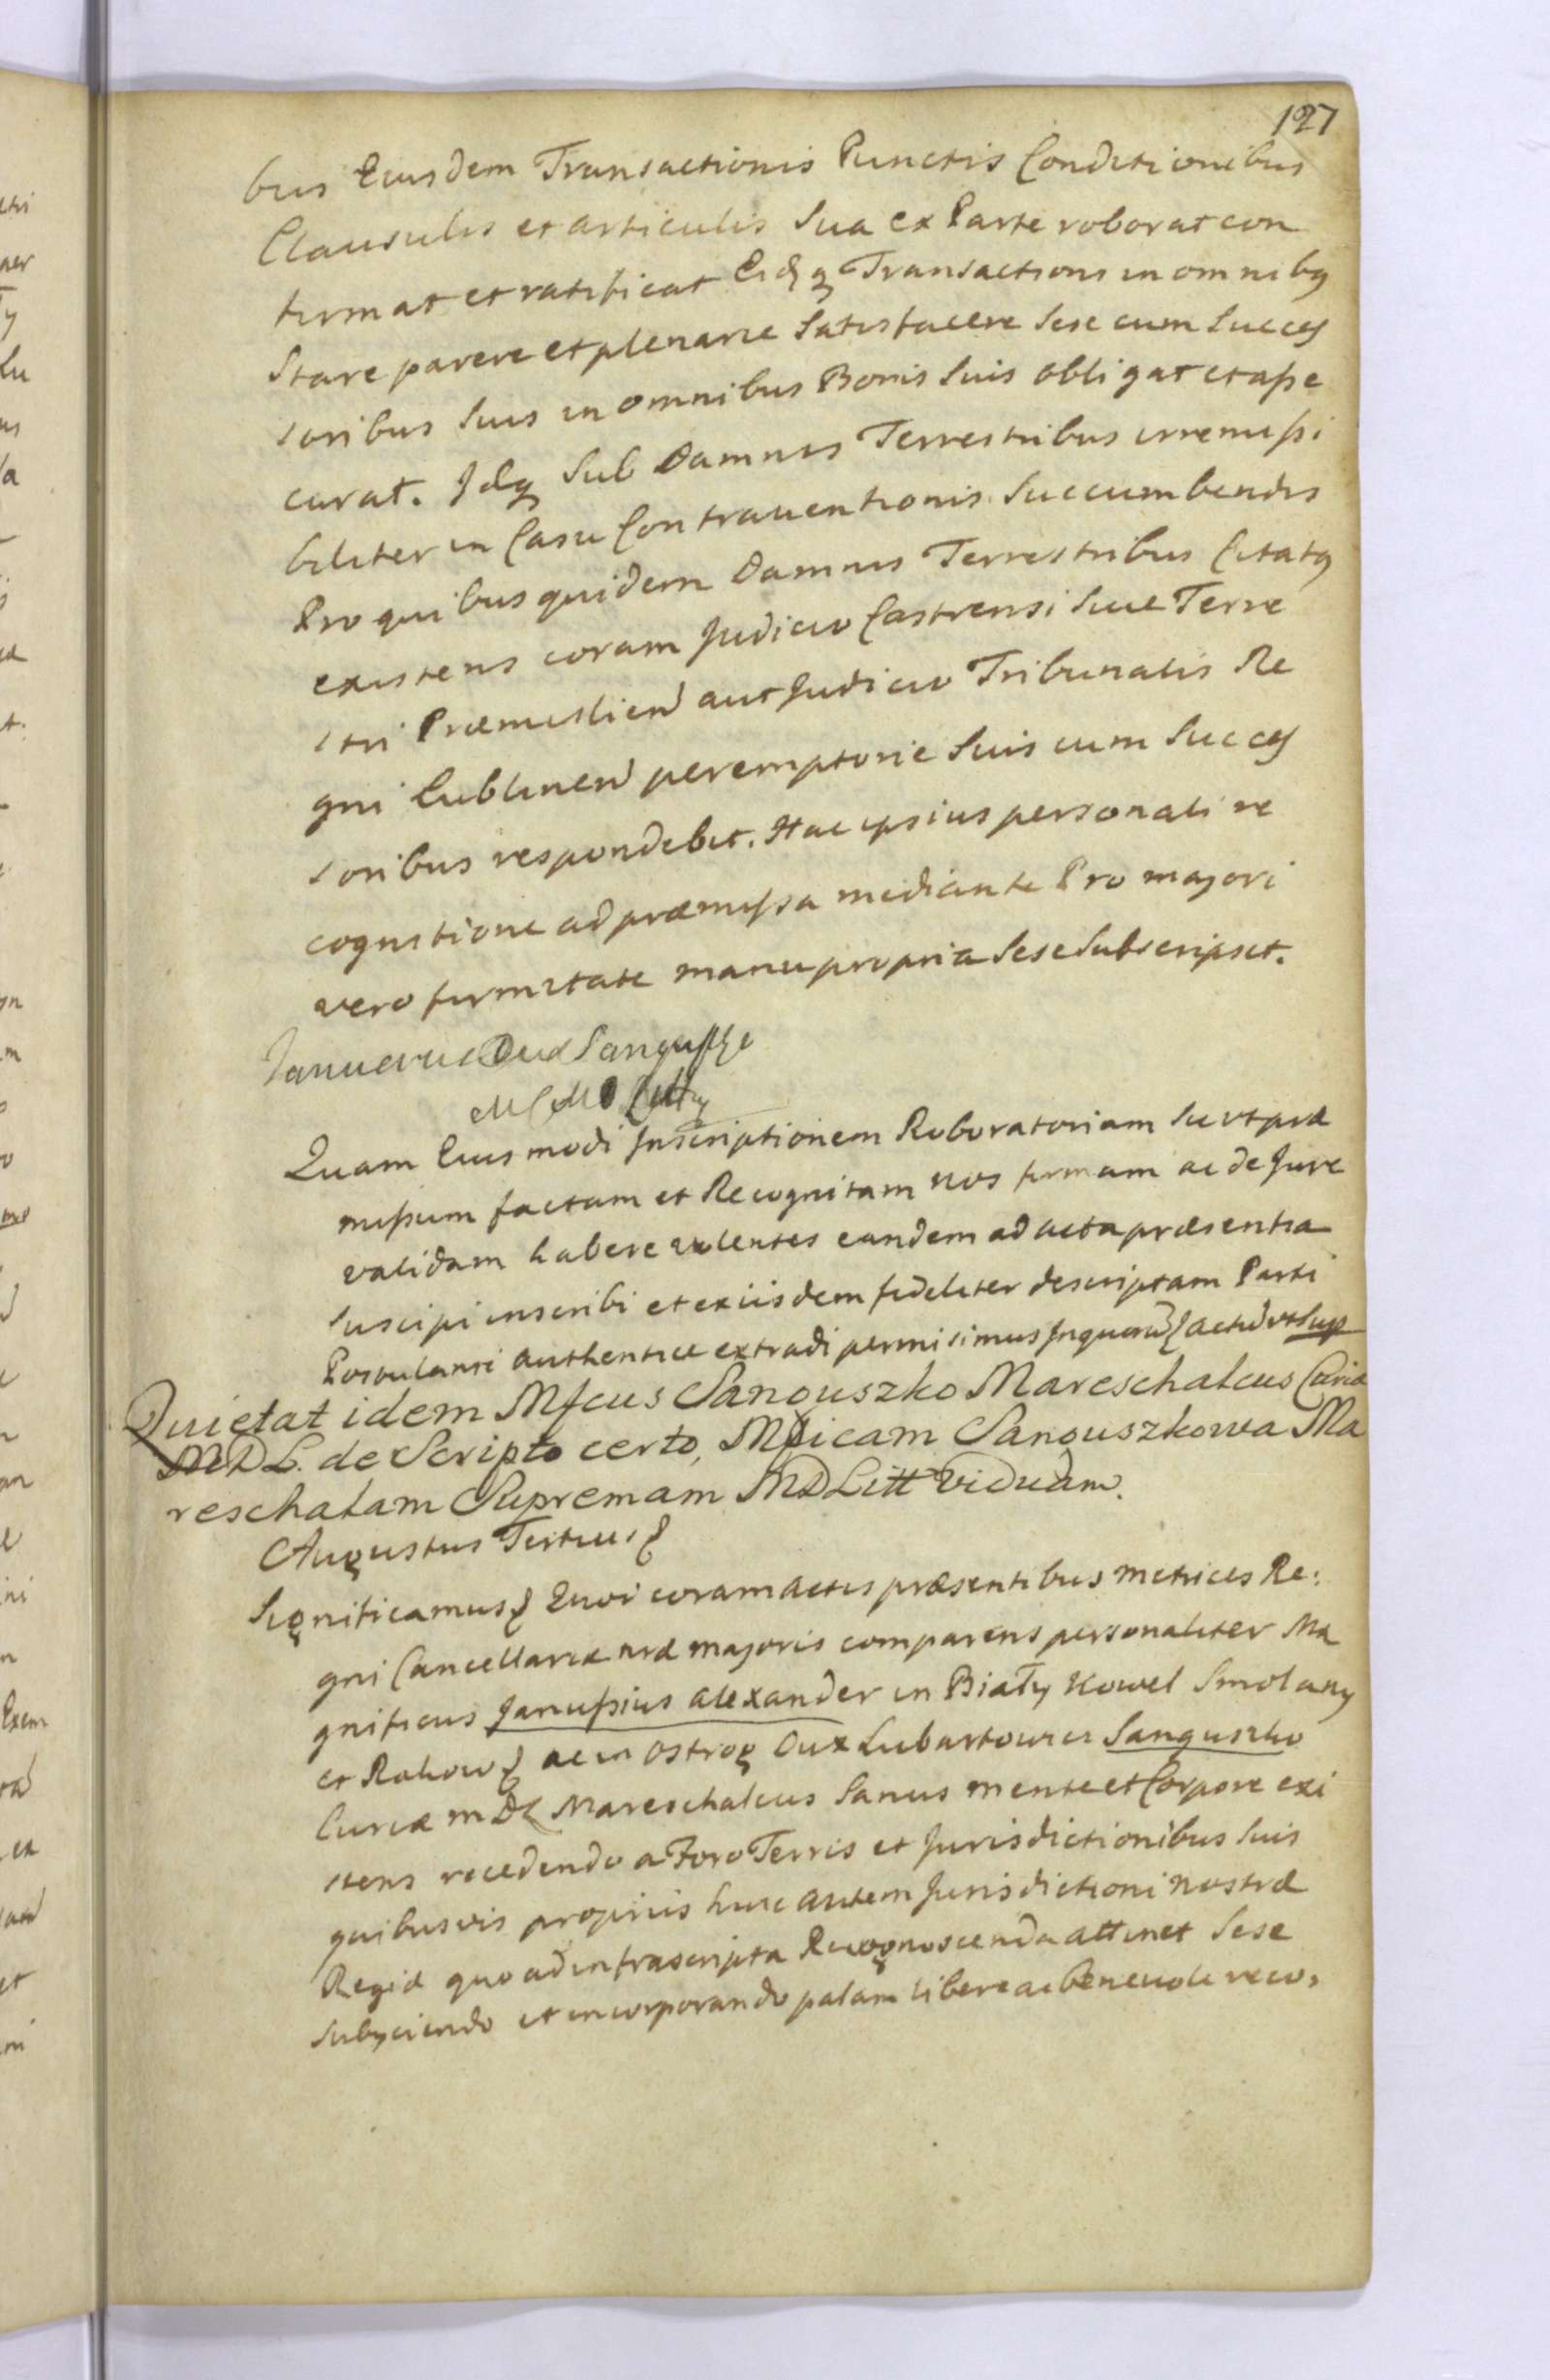 127
bus Eiusdem Transactionis Punctis Conditionibus
Clausulis et articulis Sua ex Parte roborat con
firmat et ratificat Eidq Transactioni in omnibq
Stare parere et plenarie Satisfacere Sese cum Succes
soribus Suis in omnibus Bonis Suis obligat et asse
curat. Idq Sub Damnis Terrestribus irremissi
biliter in Casu Contrauentionis Succumbendis
Pro quibus quidem Damnis Terrestribus Citatq
existens coram Judicio Castrensi Siue Terre
stri Præmislien aut Judicio Tribunalis Re
gni Lublinen peremptorie Suis cum Succes
soribus respondebit. Hac ipsius personali re
cognitione ad præmissa mediante Pro majori
vero firmitate manu propria Sese Subscripsit.
Januerus Dux Sangusko
M C M D Litty
Quam Eiusmodi Inscriptionem Roboratoriam Sic vt præ
missum factam et Recognitam nos firmam ac de Jure
validam habere volentes eandem ad acta præsentia
Suscipi inscribi et ex iisdem fideliter descriptam Parti
Postulanti authentice extradi permisimus In quorū actū vt Sup
Quietat idem Mfcus Sanguszko Mareschalcus Curiæ
MDL. de Scripto certo, Mficam Sanguszkowa Ma
reschalam Supremam MD Litt Viduam.
Augustus Tertius
Significamus Quoi coram actis præsentibus metrices Re:
gni Cancellariæ nræ majoris comparens personaliter Ma
gnificus Janussius alexander in Biały Kowel Smolany
et Rakow ac in Ostrog Dux Lubartowicz Sanguszko
Curiæ M D L Mareschalcus Sanus mente et Corpore exi
stens recedendo a Foro Terris et Jurisdictionibus Suis
quibusvis propriis huic autem Jurisdictioni nostræ
Regiæ quo ad infrascripta Recognoscenda attinet Sese
Subyciendo et incorporando palam libere ac beneuole reco,